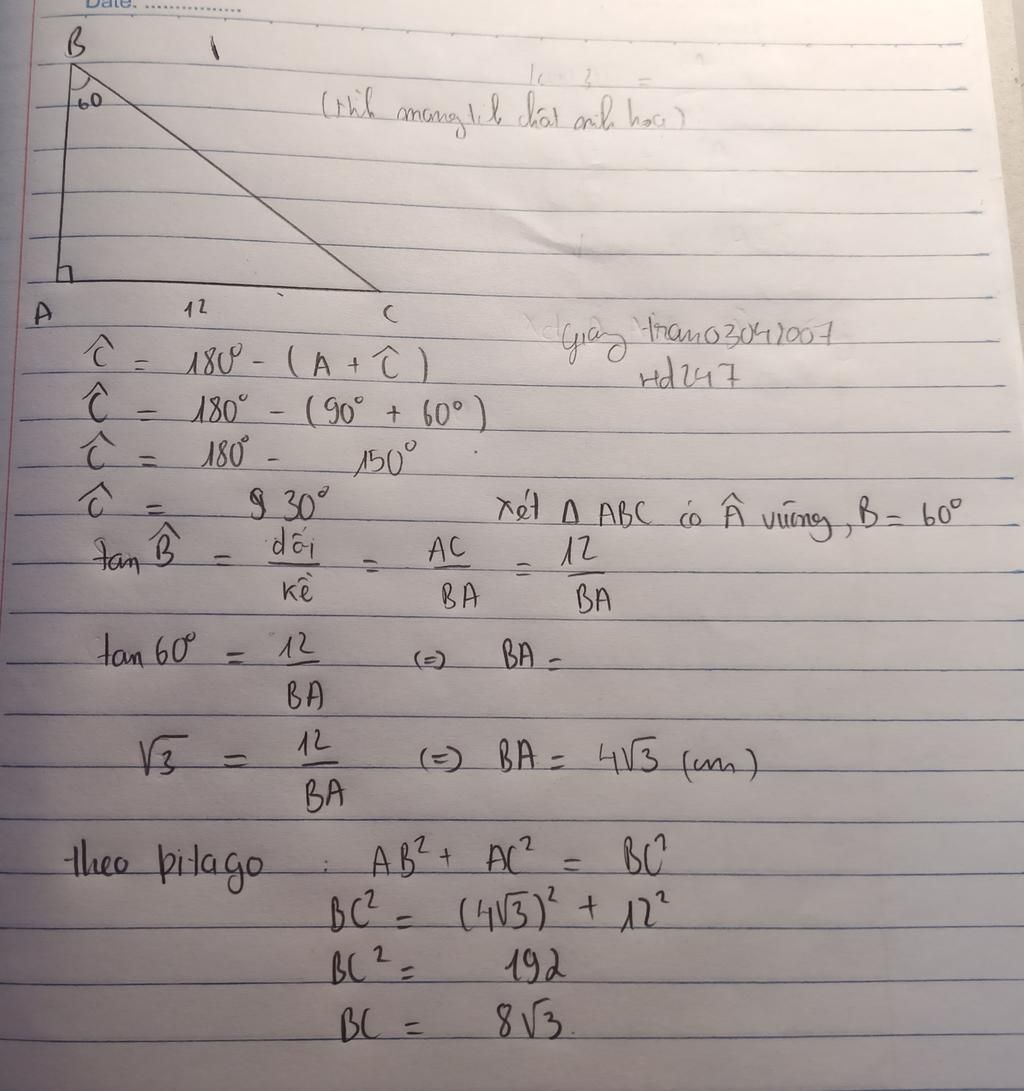 Date: ................
B
60
(Hìh mang t.h chất mih họa)
A
12
C
Giang tran03042007
Hd247
Ĉ = 180° - (A + Ĉ)
Ĉ = 180° - (90° + 60°)
Ĉ = 180° - 150°
Ĉ = 30°
Xét Δ ABC có Â vuông, B = 60°
tan B̂ = đối/kề = AC/BA = 12/BA
tan 60° = 12/BA (=) BA =
√3 = 12/BA (=) BA = 4√3 (cm)
theo pitago : AB² + AC² = BC²
BC² = (4√3)² + 12²
BC² = 192
BC = 8√3.